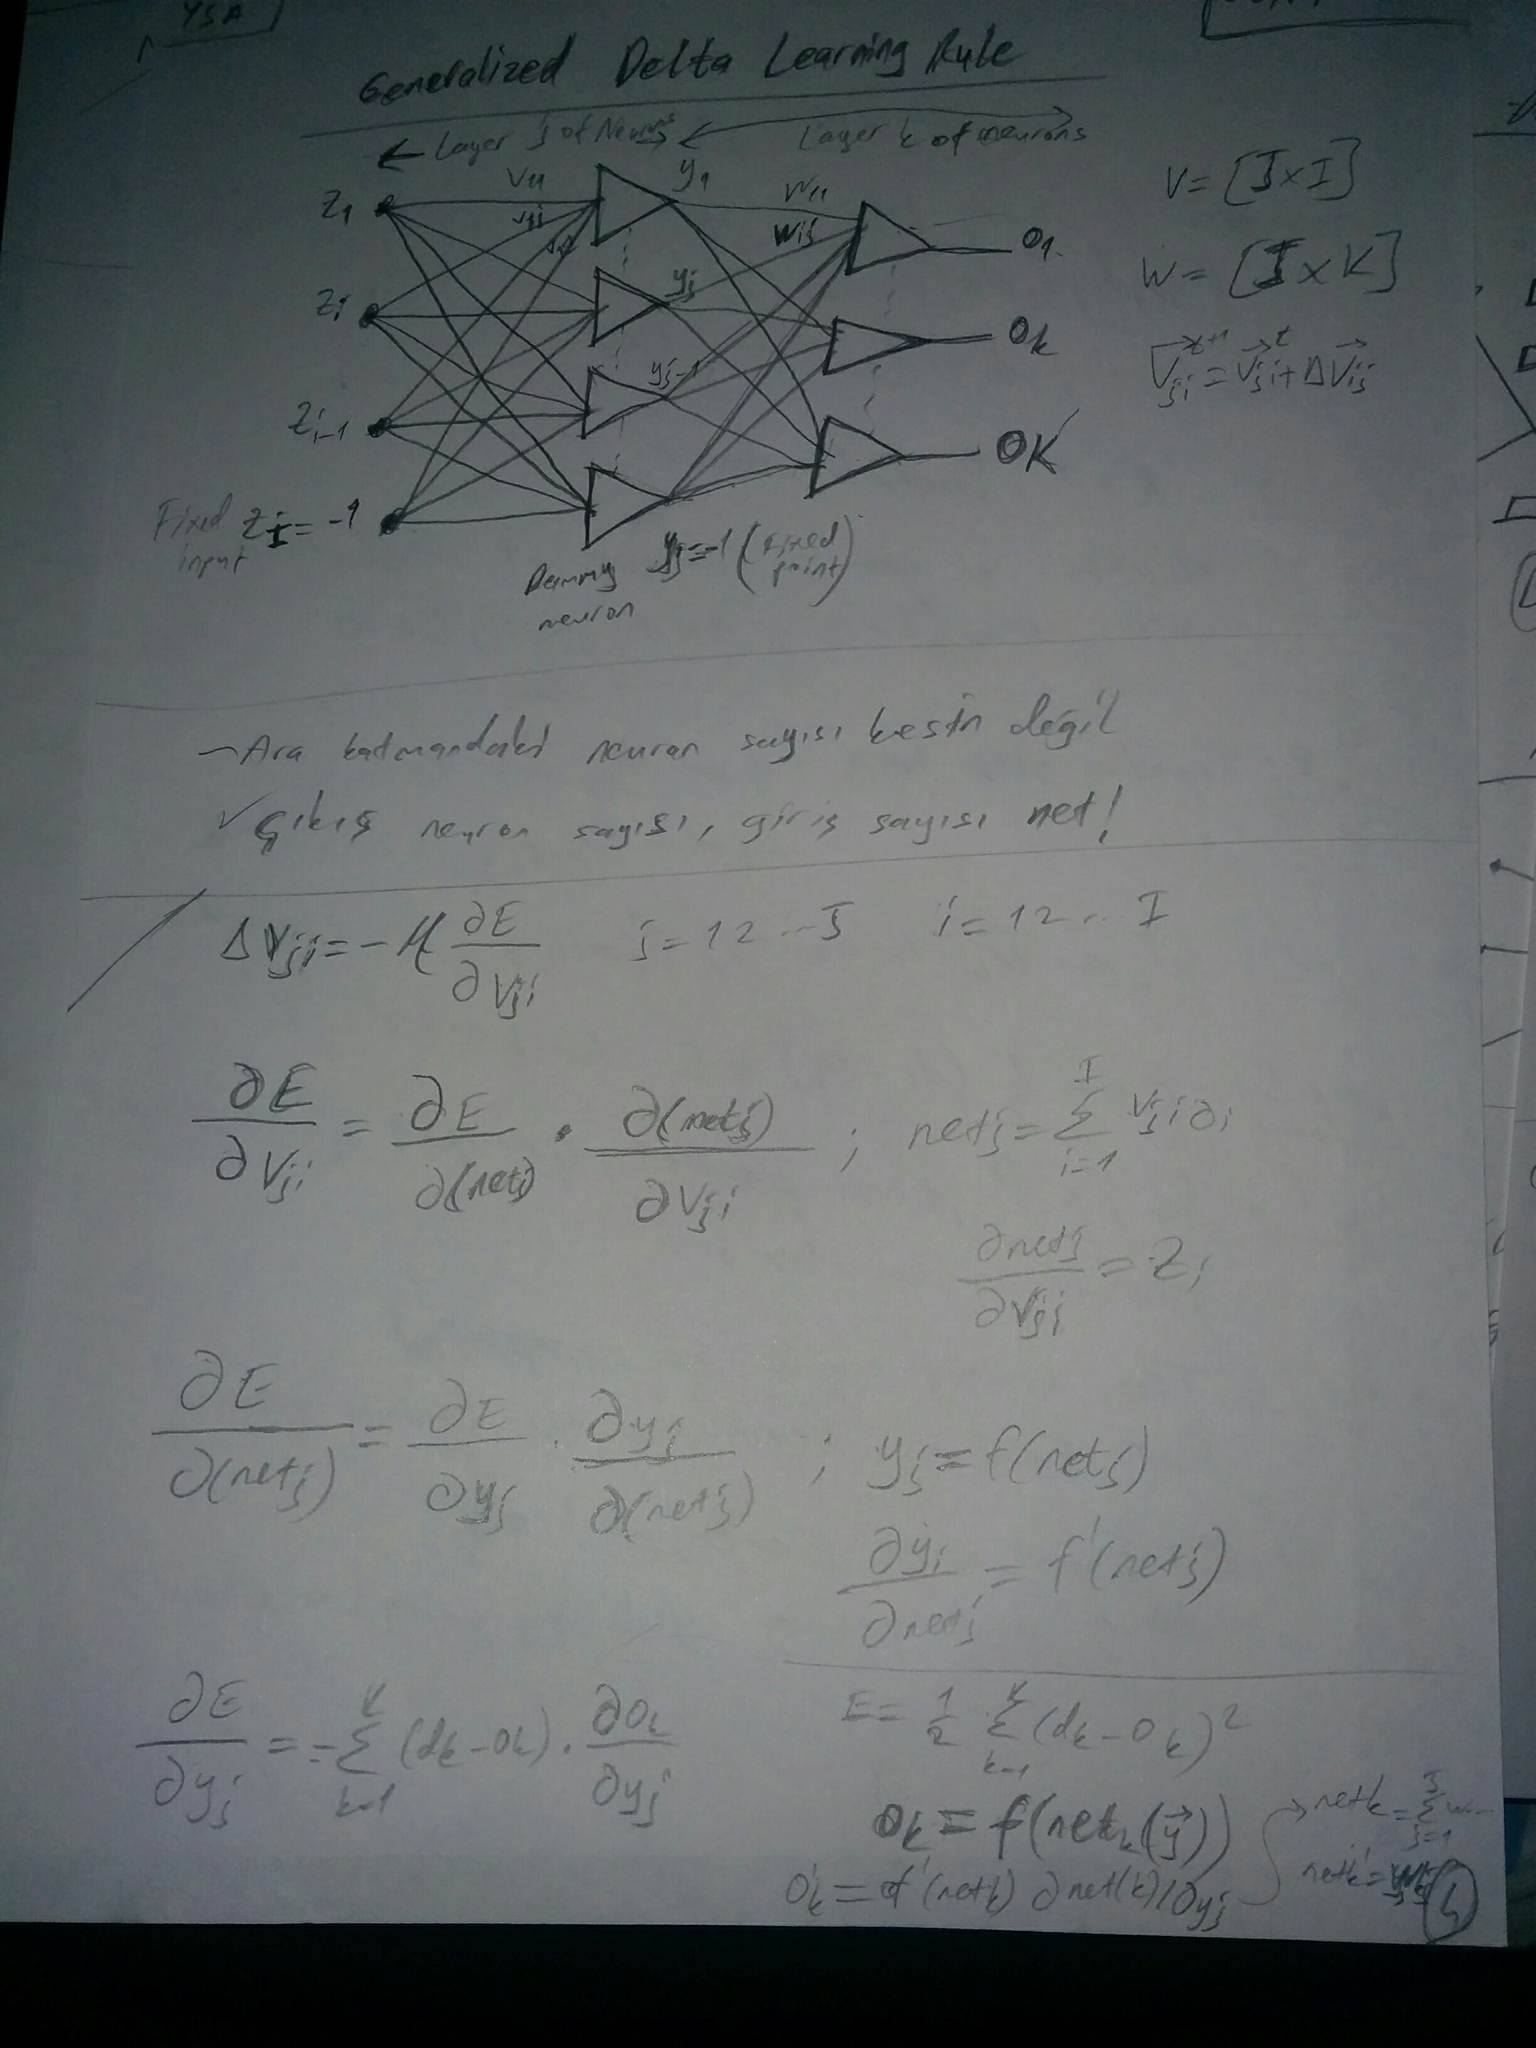 YSA
Generalized Delta Learning Rule
Layer j of Neurons
Layer k of neurons
V11
y1
W11
Z1
Vji
Wij
O1
V = [J×I]
Zi
yj
Ok
W = [J×K]
Vji^t+1 = Vji^t + ΔVij
Zi-1
yj-1
OK
Fixed input ZI = -1
Dummy neuron
yj = -1 (Fixed point)
- Ara katmandaki neuron sayısı kesin değil
✓ Çıkış neuron sayısı, giriş sayısı net!
ΔVji = -η ∂E/∂Vji j = 1 2 ... J i = 1 2 .. I
∂E/∂Vji = ∂E/∂(netj) . ∂(netj)/∂Vji ; netj = Σ i=1 I Vji ∂i
∂netj/∂Vji = Zi
∂E/∂(netj) = ∂E/∂yj . ∂yj/∂(netj) ; yj = f(netj)
∂yj/∂netj = f'(netj)
∂E/∂yj = - Σ k=1 K (dk - Ok) . ∂Ok/∂yj
E = 1/2 Σ k=1 K (dk - Ok)²
Ok = f(netk(y⃗))
netk = Σ j=1 J w...
O'k = f'(netk) ∂net(k)/∂yj
netk' =